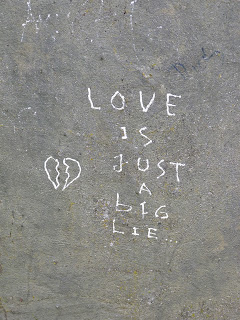 LOVE
IS
JUST
A
bIG
LIE...